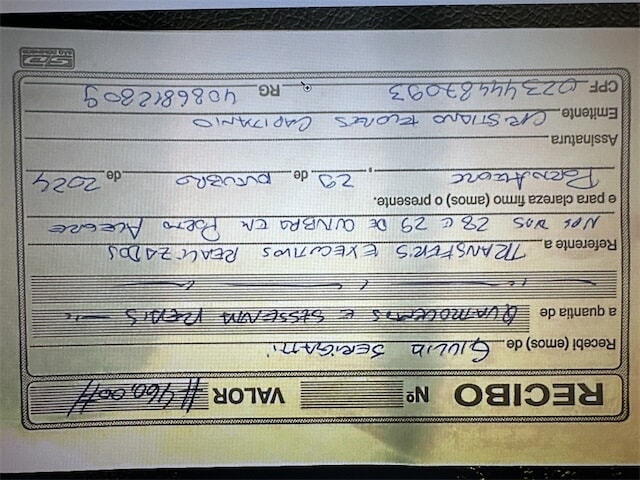 RECIBO Nº VALOR //460,00//
Recebi (emos) de) GIULIA
a quantia de QUATROCENTOS E SESSENTA REAIS
Referente a TRANSFERS EXECUTIVOS REALIZADOS
NOS DIAS 28 E 29 DE OUTUBRO EM PORTO ALEGRE
e para clareza firmo (amos) o presente.
PORTO ALEGRE, 29 de OUTUBRO de 2024
Assinatura
Emitente CRISTIANO FLORES CAPITANIO
CPF 02344487093 RG 4086812809
SD
SÃO DOMINGOS